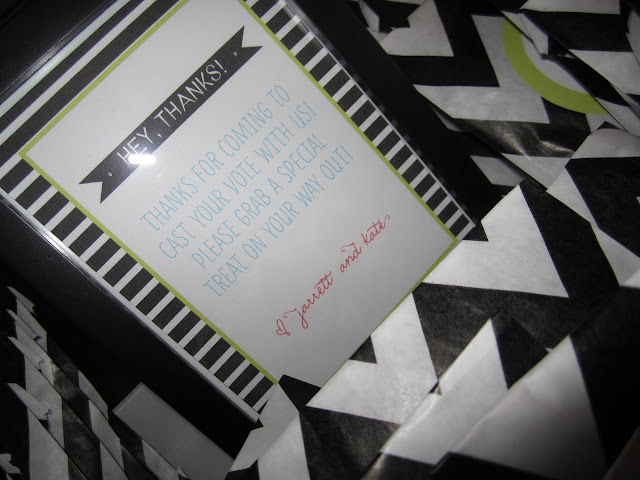 HEY, THANKS!
THANKS FOR COMING TO
CAST YOUR VOTE WITH US!
PLEASE GRAB A SPECIAL
TREAT ON YOUR WAY OUT!
Jarrett and Kate